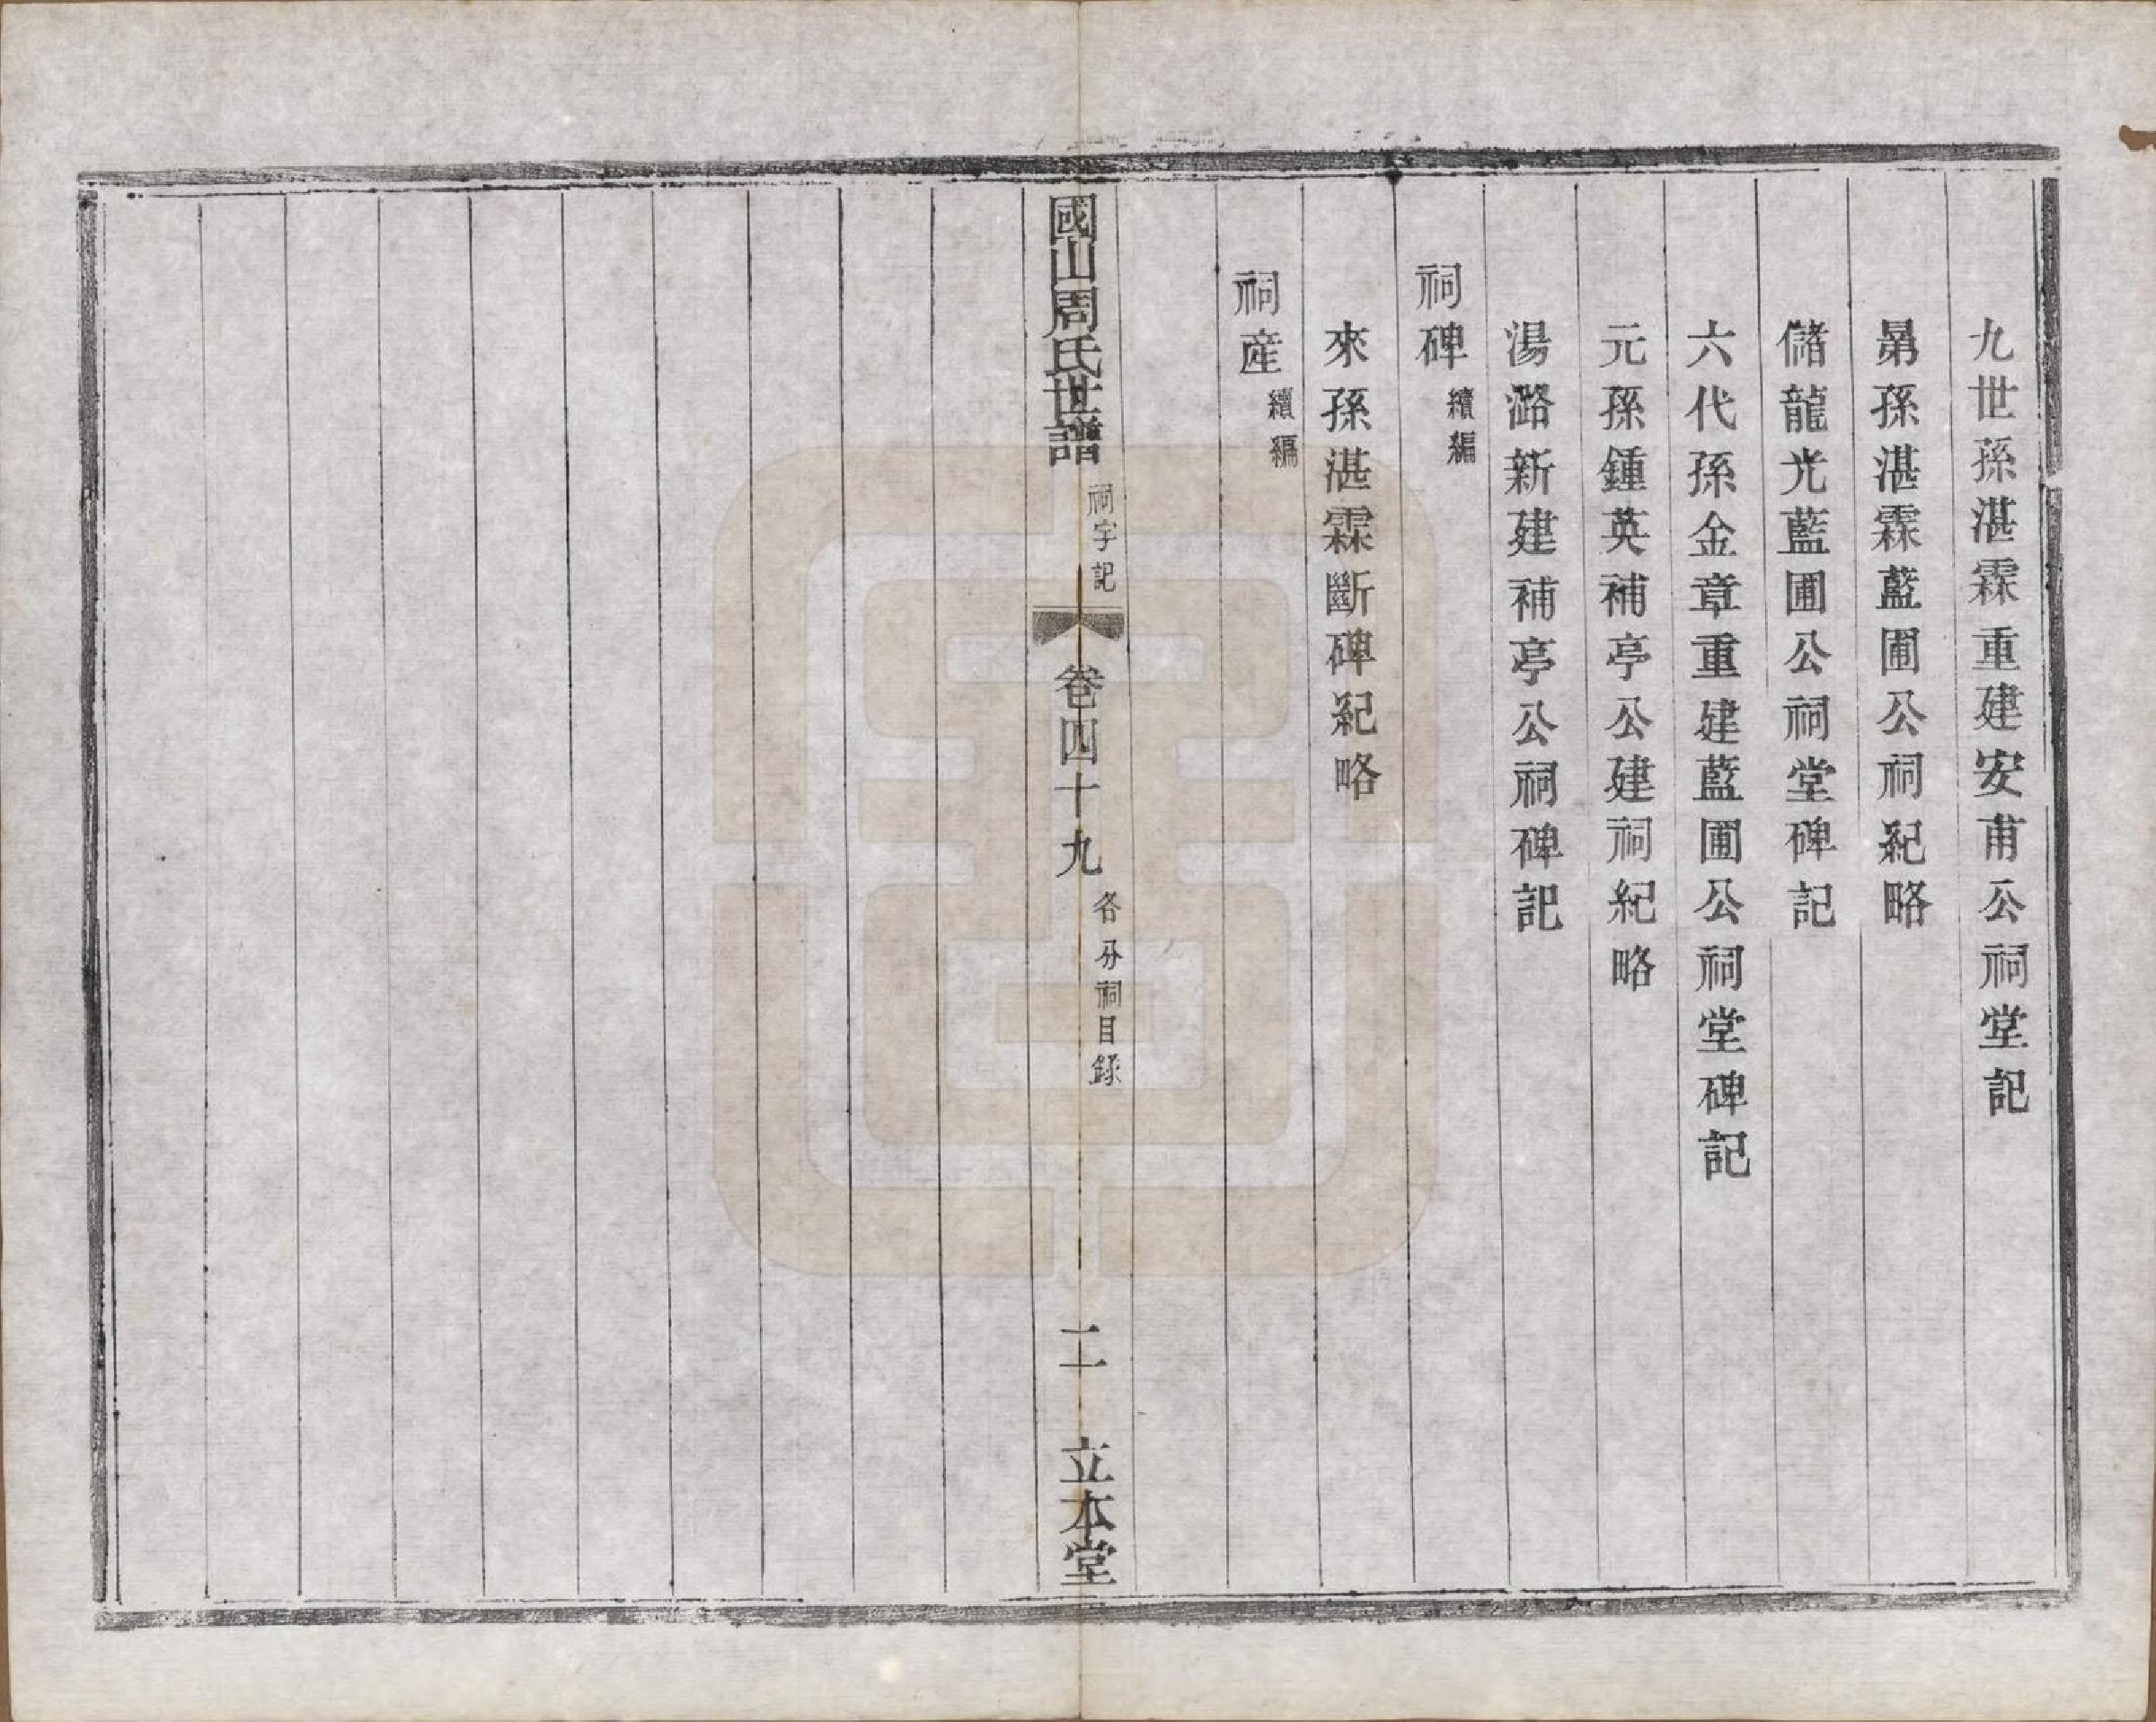 九世孫湛霖重建安甫公祠堂記
晜孫湛霖藍圃公祠紀略
儲龍光藍圃公祠堂碑記
六代孫金章重建藍圃公祠堂碑記
元孫鍾英補亭公建祠紀略
湯潞新建補亭公祠碑記
祠碑 續編
來孫湛霖斷碑紀略
祠產 續編
國山周氏世譜 祠宇記 卷四十九 各分祠目錄 二 立本堂